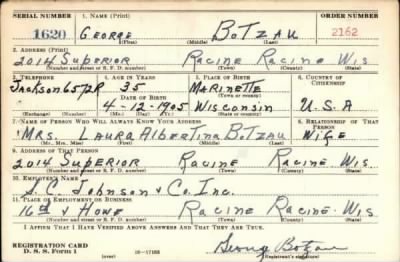 SERIAL NUMBER 1. NAME (Print) ORDER NUMBER
1620 GEORGE BOTZAU 2162
(First) (Middle) (Last)
2. ADDRESS (Print)
2014 SUPERIOR RACINE RACINE WIS
(Number and street or R. F. D. number) (Town) (County) (State)
3. TELEPHONE 4. AGE IN YEARS 5. PLACE OF BIRTH 6. COUNTRY OF CITIZENSHIP
JACKSON 6572R 35 MARINETTE
DATE OF BIRTH (Town or county)
4-12-1905 WISCONSIN U.S.A
(Exchange) (Number) (Mo.) (Day) (Yr.) (State or country)
7. NAME OF PERSON WHO WILL ALWAYS KNOW YOUR ADDRESS 8. RELATIONSHIP OF THAT PERSON
MRS. LAURA ALBERTINA BOTZAU WIFE
(Mr., Mrs., Miss) (First) (Middle) (Last)
9. ADDRESS OF THAT PERSON
2014 SUPERIOR RACINE RACINE WIS
(Number and street or R. F. D. number) (Town) (County) (State)
10. EMPLOYER'S NAME
S. C. Johnson & Co. Inc.
11. PLACE OF EMPLOYMENT OR BUSINESS
16th & HOWE RACINE RACINE. WIS
(Number and street or R. F. D. number) (Town) (County) (State)
I AFFIRM THAT I HAVE VERIFIED ABOVE ANSWERS AND THAT THEY ARE TRUE.
REGISTRATION CARD
D. S. S. Form 1 (over) George Botzau
(Registrant's signature)